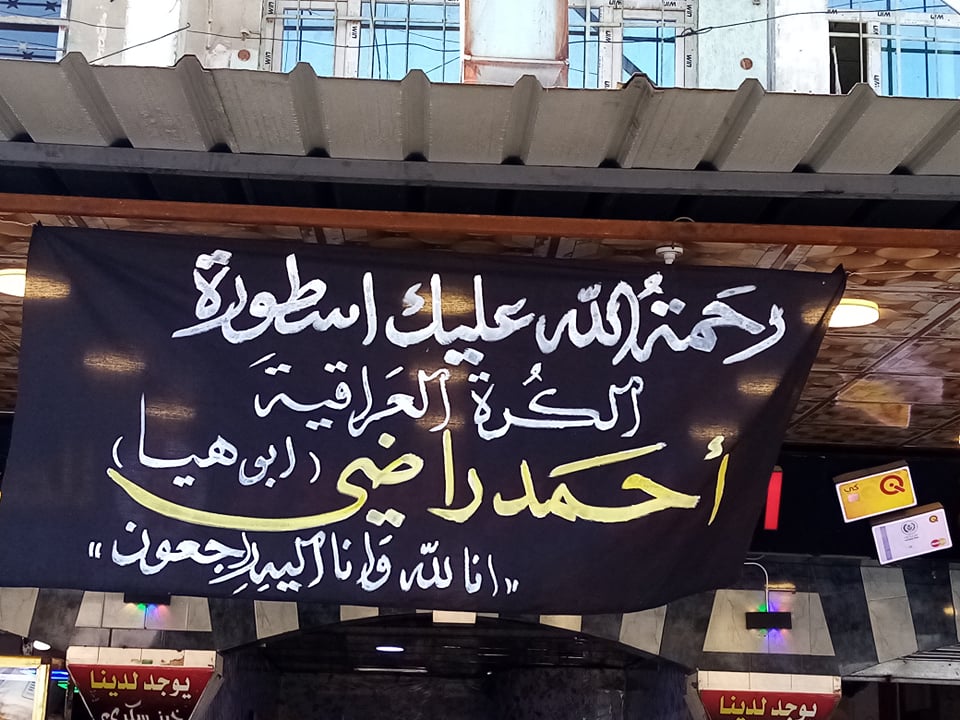 رحمةُ الله عليك اسطورة
الكُرة العَراقية
أحمد راضي (ابو هيا)
"انا لله وَانا اليهِ رجعون"
كي
يوجد لدينا
خبز سكري
يوجد لدينا